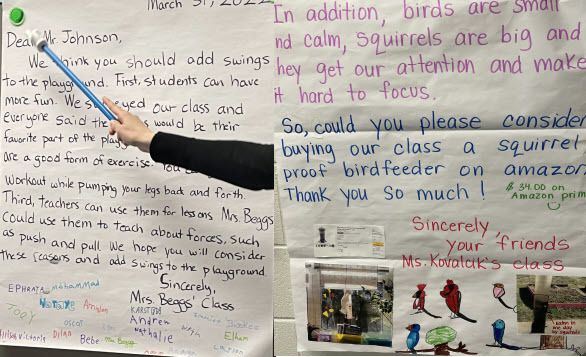 March 31, 2022
Dear Mr. Johnson,
We think you should add swings
to the playground. First, students can have
more fun. We surveyed our class and
everyone said the would be their
favorite part of the
are a good form of exercise. You
workout while pumping your legs back and forth.
Third, teachers can use them for lessons. Mrs. Beggs
could use them to teach about forces, such
as push and pull. We hope you will consider
these reasons and add swings to the playground.
Sincerely,
Mrs. Beggs' Class
EPHRATA Mohammad
KARSTYN
Andrew
Nathalie
JOEY
Oscar
Victoria Dylan Bebe
Elham
Carson
In addition, birds are small
nd calm, squirrels are big and
hey get our attention and make
it hard to focus.
So, could you please consider
buying our class a squirrel
proof birdfeeder on amazon.
Thank you so much!
$34.00 on
Amazon prim
Sincerely,
your friends
Ms. Kovalcik's class